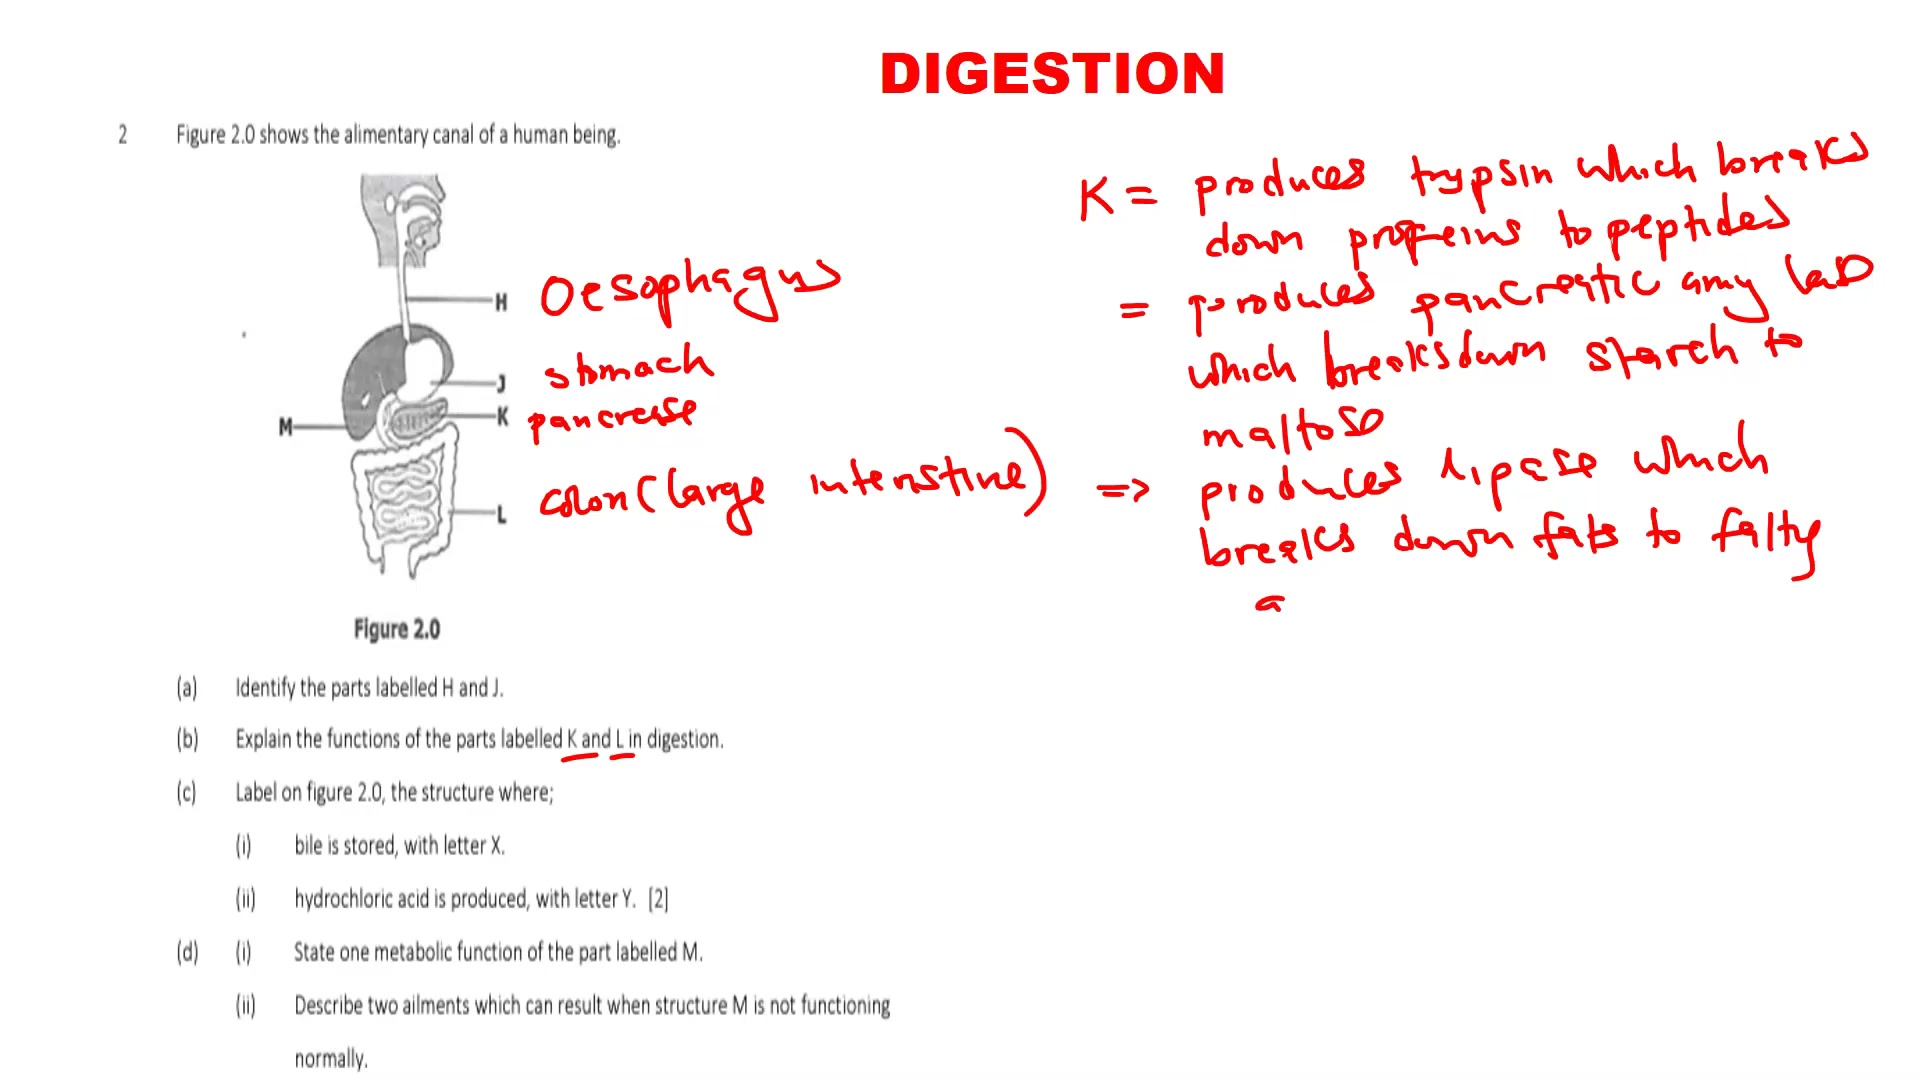 DIGESTION
2 Figure 2.0 shows the alimentary canal of a human being.
H Oesophagus
J stomach
K pancrease
M
L colon (large intenstine)
Figure 2.0
K = produces trypsin which breaks
down proteins to peptides
= produces pancreatic amy lase
which breaksdown starch to
maltose
=> produces lipase which
breaks down fats to fatty
a
(a) Identify the parts labelled H and J.
(b) Explain the functions of the parts labelled K and L in digestion.
(c) Label on figure 2.0, the structure where;
(i) bile is stored, with letter X.
(ii) hydrochloric acid is produced, with letter Y. [2]
(d) (i) State one metabolic function of the part labelled M.
(ii) Describe two ailments which can result when structure M is not functioning
normally.